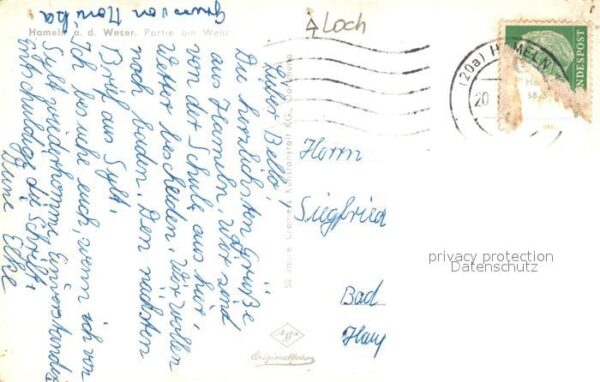 Gruss von Monika
Hameln a. d. Weser. Partie am Wehr
Lieber Bello!
Die herzlichsten Grüße
aus Hameln. Wir sind
von der Schule aus hier.
Wetter bescheiden. Wir wollen
noch baden. Den nächsten
Brief aus Sylt.
Ich besuche euch, wenn ich von
Sylt wiederkomme. Einverstanden
Entschuldige die Schrift.
Deine Elke
50 Jahre Cramers Kunstanstalt KG, Dortmund
Loch
(20a) HAMELN
20
BUNDESPOST
Herrn
Siegfried
Bad
Harz
privacy protection
Datenschutz
Originalfoto